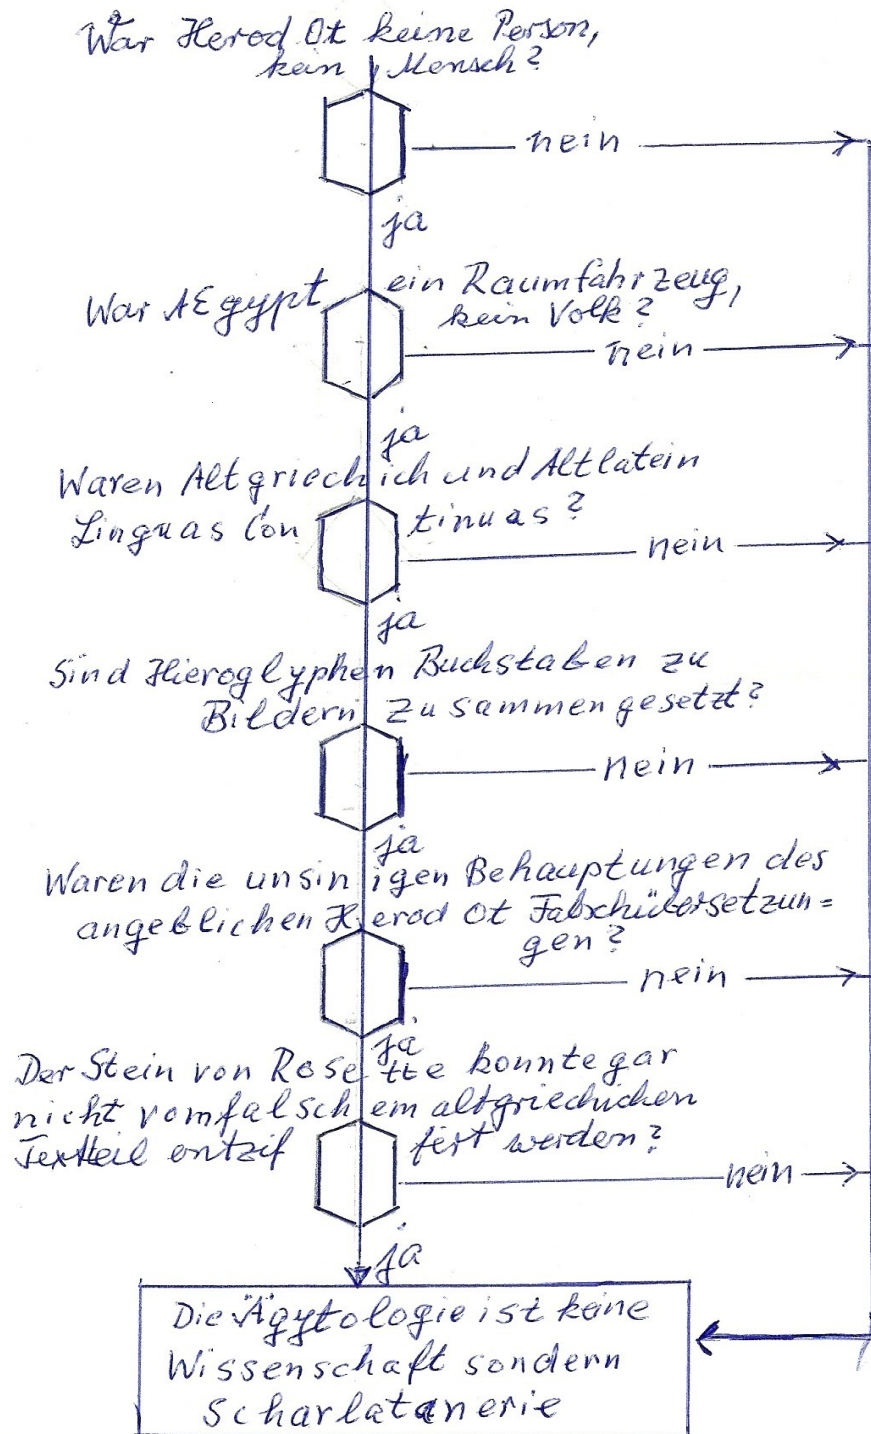 War Herod Ot keine Person,
kein Mensch?
nein
ja
War AEgypt ein Raumfahrzeug,
kein Volk?
nein
ja
Waren Altgriechich und Altlatein
Linguas Continuas?
nein
ja
Sind Hieroglyphen Buchstaben zu
Bildern zusammengesetzt?
nein
ja
Waren die unsinigen Behauptungen des
angeblichen Herod Ot Falschübersetzun=
gen?
nein
ja
Der Stein von Rosette konnte gar
nicht vom falschem altgriechichen
Textteil entziffert werden?
nein
ja
Die Ägytologie ist keine
Wissenschaft sondern
Scharlatanerie